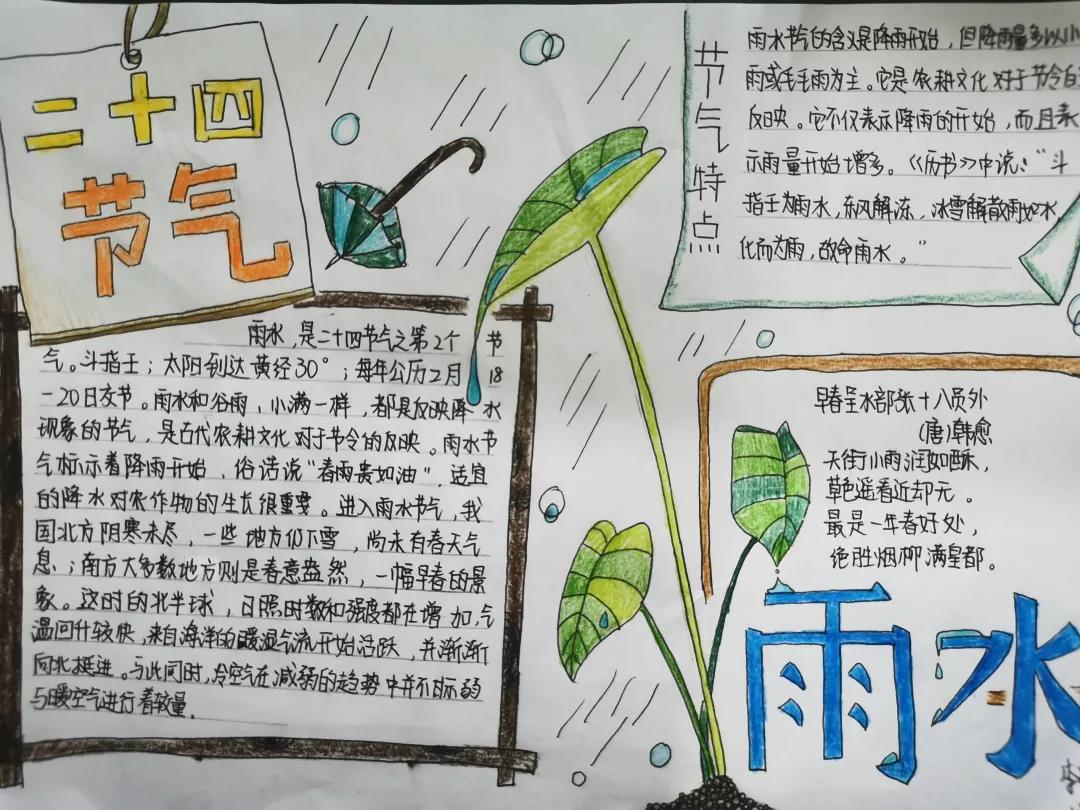 二十四
节气
雨水，是二十四节气之第2个节
气。斗指壬；太阳到达黄经30°；每年公历2月18
-20日交节。雨水和谷雨、小满一样，都是反映降水
现象的节气，是古代农耕文化对于节令的反映。雨水节
气标示着降雨开始、俗话说“春雨贵如油”，适宜
的降水对农作物的生长很重要。进入雨水节气，我
国北方阴寒未尽，一些地方仍下雪，尚未有春天气
息；南方大多数地方则是春意盎然，一幅早春的景
象。这时的北半球，日照时数和强度都在增加，气
温回升较快，来自海洋的暖湿气流开始活跃，并渐渐
向北挺进。与此同时，冷空气在减弱的趋势中并不甘示弱
与暖空气进行着较量.
节气特点
雨水节气的含义是降雨开始，但降雨量多以小
雨或毛毛雨为主。它是农耕文化对于节令的
反映。它不仅表示降雨的开始，而且表
示雨量开始增多。《历书》中说：“斗
指壬为雨水，东风解冻，冰雪解散而如水，
化而为雨，故命雨水。”
早春呈水部张十八员外
(唐)韩愈
天街小雨润如酥，
草色遥看近却无。
最是一年春好处，
绝胜烟柳满皇都。
雨水